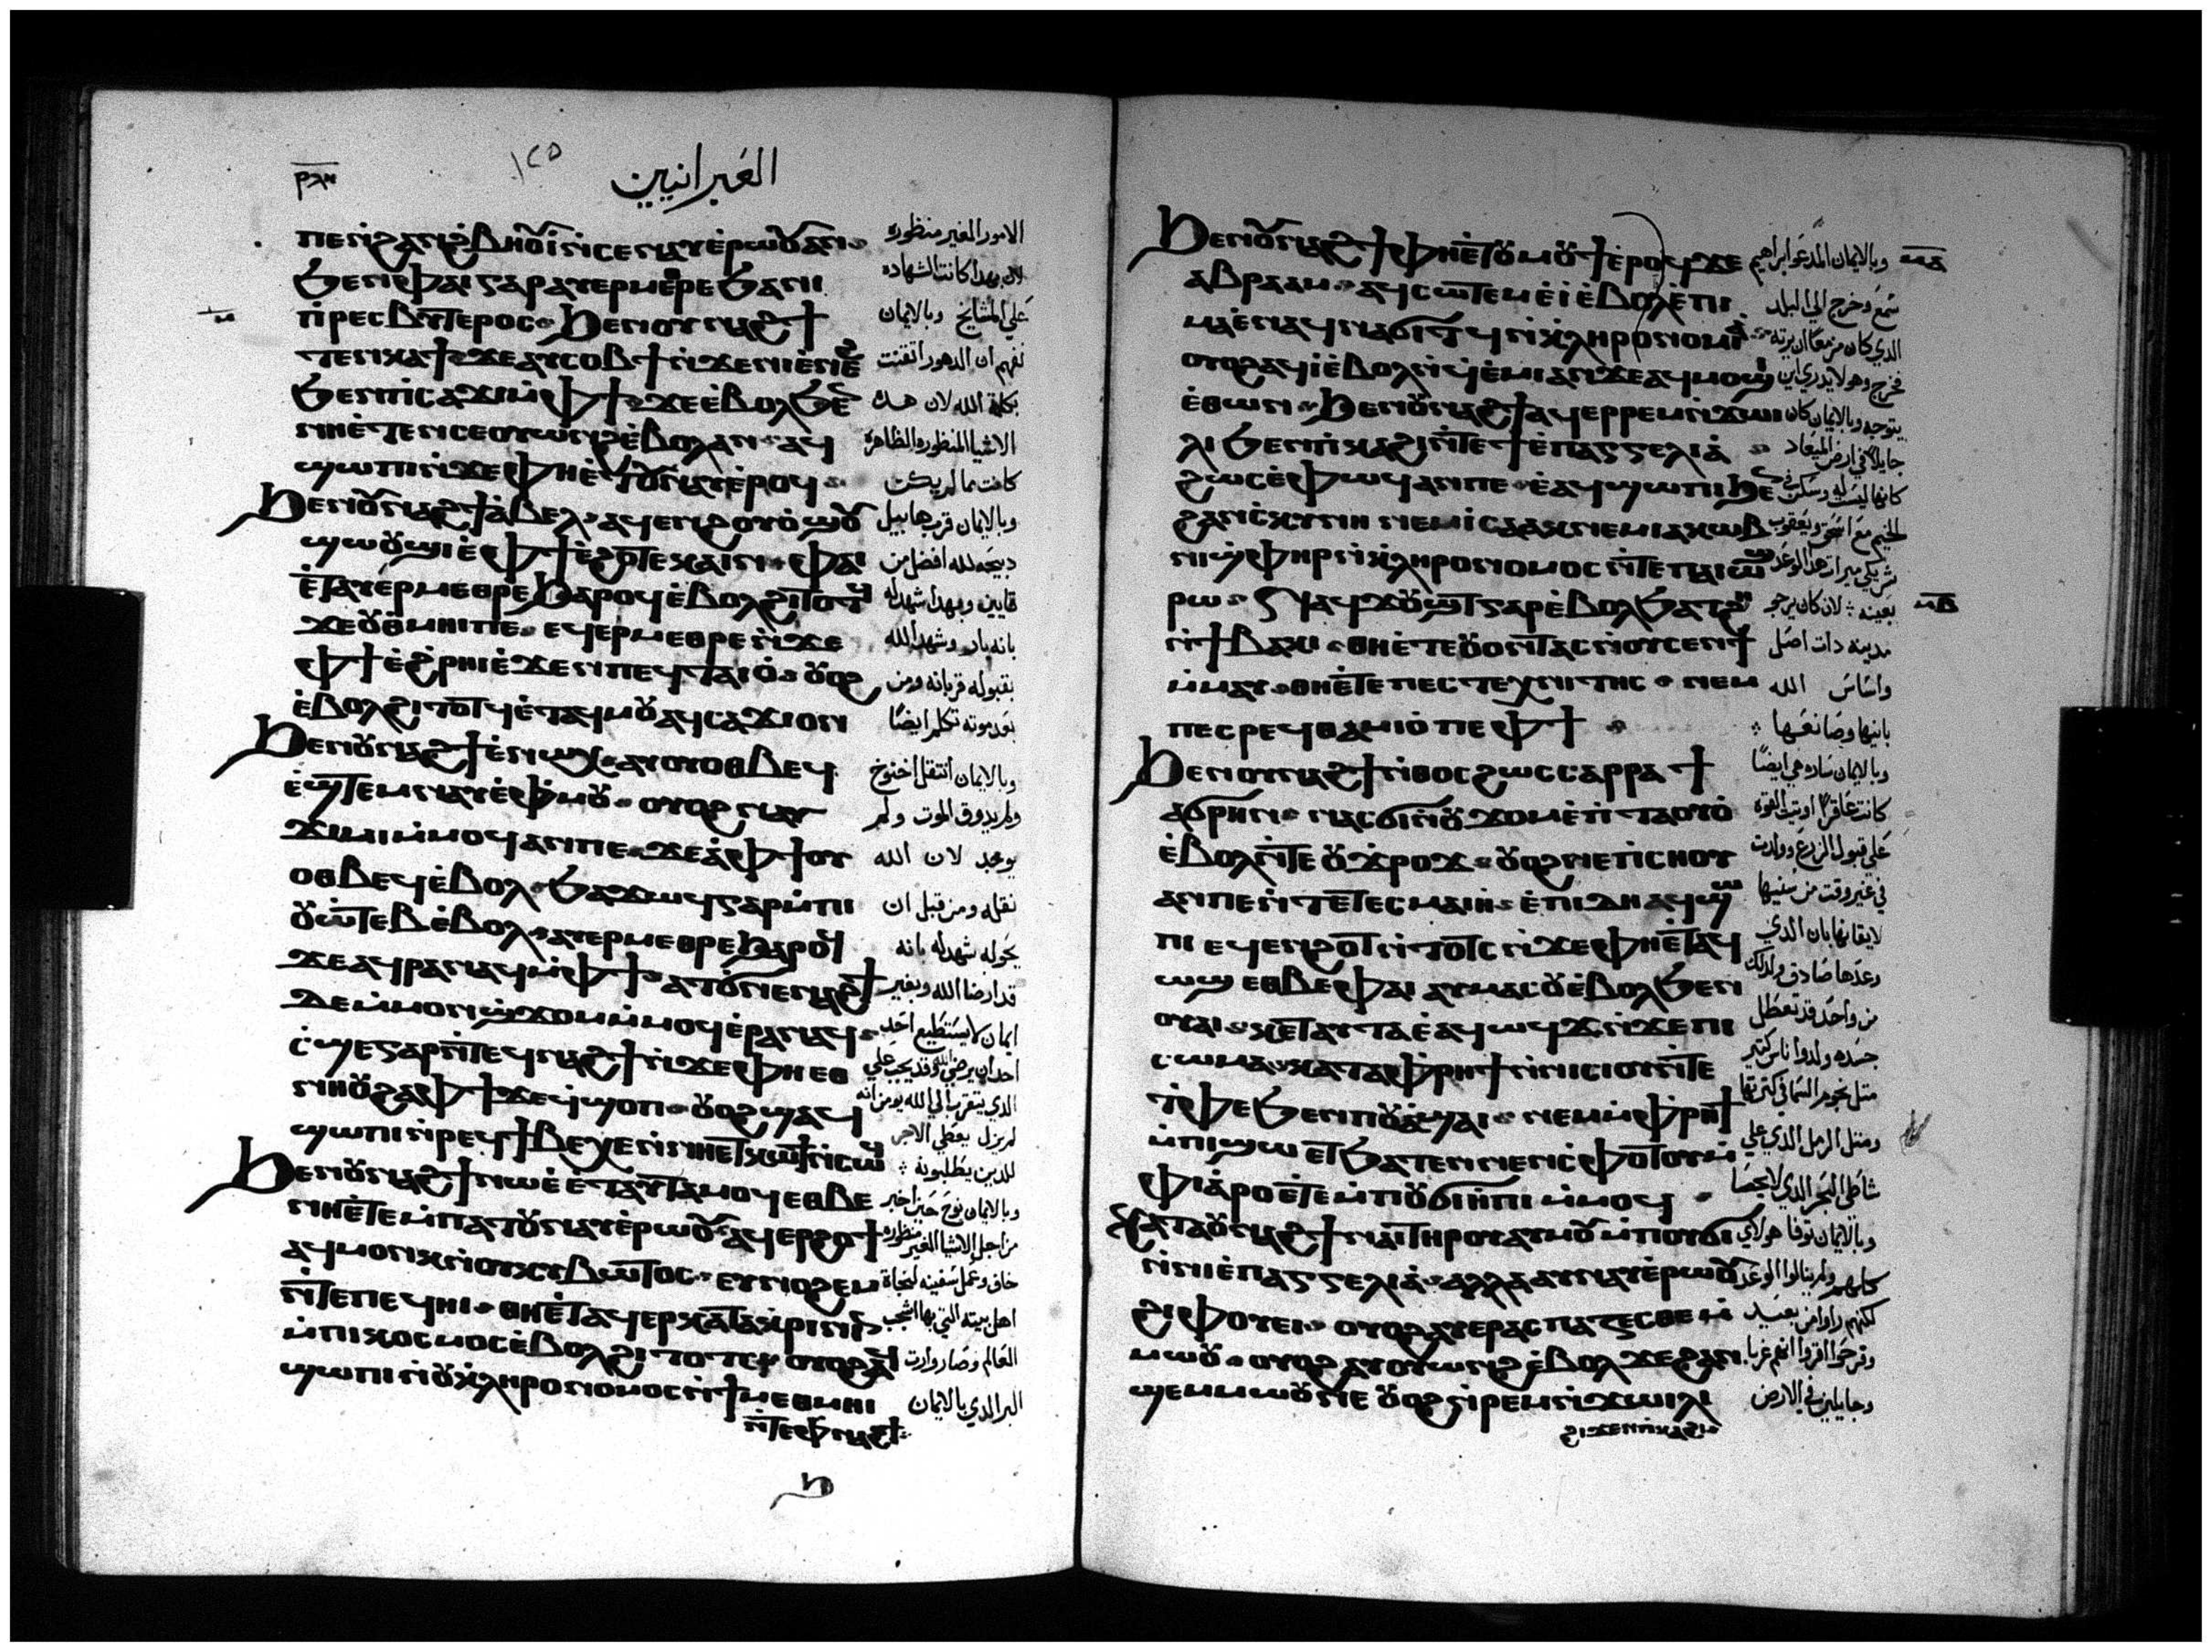 العبرانيين
١٢٥
ⲡⲉⲛϩⲁⲛϩⲃⲏⲟⲩⲓ̀ⲛⲓⲥⲉⲛⲁⲩⲉ̀ⲣⲱⲟⲩⲁⲛ
ϧⲉⲛⲫⲁⲓⲅⲁⲣⲁⲩⲉⲣⲙⲉⲑⲣⲉϧⲁⲛⲓ
ⲡ̀ⲣⲉⲥⲃⲩⲧⲉⲣⲟⲥ ϧⲉⲛⲟⲩⲛⲁϩϯ
ⲧⲉⲛⲕⲁϯ ϫⲉⲁⲩⲥⲟⲃϯⲛ̀ϫⲉⲛⲓⲉ̀ⲛⲉϩ
ϧⲉⲛⲡ̀ⲥⲁϫⲓⲙ̀ⲫϯ ϫⲉⲉ̀ⲃⲟⲗϧⲉ
ⲛⲛⲏⲉ̀ⲧⲉⲛⲥⲉⲟⲩⲱⲛϩⲉ̀ⲃⲟⲗⲁⲛ ⲁϥ
ϣⲱⲡⲓⲛ̀ϫⲉⲫⲏⲉ̀ⲧⲟⲩⲛⲁⲩⲉ̀ⲣⲟϥ
ϧⲉⲛⲟⲩⲛⲁϩϯⲁ̀ⲃⲉⲗ ⲁϥⲉⲛϩⲟⲩⲟ̀ϣⲟⲩ
ϣⲱⲟⲩϣⲓⲉ̀ⲫϯⲉ̀ϩⲟⲧⲉⲕⲁⲓⲛ ⲫⲁⲓ
ⲉ̀ⲧⲁⲩⲉⲣⲙⲉⲑⲣⲉϧⲁⲣⲟϥⲉ̀ⲃⲟⲗϩⲓⲧⲟⲧϥ
ϫⲉⲟⲩⲑⲙⲏⲓⲡⲉ ⲉϥⲉⲣⲙⲉⲑⲣⲉⲛ̀ϫⲉ
ⲫϯⲉ̀ϩ̀ⲣⲏⲓⲉ̀ϫⲉⲛⲡⲉϥⲧⲁⲓⲟ̀ ⲟⲩⲟϩ
ⲉ̀ⲃⲟⲗϩⲓⲧⲟⲧϥⲉ̀ⲧⲁϥⲙⲟⲩⲁϥⲥⲁϫⲓⲟⲛ
ϧⲉⲛⲟⲩⲛⲁϩϯⲉ̀ⲛⲱⲭ ⲁⲩⲟⲩⲟⲑⲃⲉϥ
ⲉ̀ϣ̀ⲧⲉⲙⲛⲁⲩⲉ̀ⲫ̀ⲙⲟⲩ ⲟⲩⲟϩⲛⲁⲩ
ϫⲓⲙⲓⲙ̀ⲙⲟϥⲁⲛⲡⲉ ϫⲉⲁ̀ⲫϯⲟⲩ
ⲟⲑⲃⲉϥⲉ̀ⲃⲟⲗ ϧⲁϫⲱϥⲅⲁⲣⲙ̀ⲡⲓ
ⲟⲩⲱ̀ⲧⲉⲃⲉ̀ⲃⲟⲗ ⲁⲩⲉⲣⲙⲉⲑⲣⲉϧⲁⲣⲟϥ
ϫⲉⲁϥⲣⲁⲛⲁϥⲙ̀ⲫϯ ⲁⲧϭⲛⲉⲛⲁϩϯ
ⲇⲉⲙ̀ⲙⲟⲛϣ̀ϫⲟⲙⲙ̀ⲙⲟϥⲉ̀ⲣⲁⲛⲁϥ
ⲥ̀ϣⲉⲅⲁⲣⲛ̀ⲧⲉϥⲛⲁϩϯⲛ̀ϫⲉⲫⲏⲉⲑ
ⲛⲏⲟⲩϩⲁⲫϯϫⲉϥϣⲟⲡ ⲟⲩⲟϩϣⲁϥ
ϣⲱⲡⲓⲛ̀ⲣⲉϥϯⲃⲉⲭⲉⲛ̀ⲛⲏⲉⲧⲕⲱϯⲛ̀ⲥⲱϥ
ϧⲉⲛⲟⲩⲛⲁϩϯⲛⲱⲉ̀ ⲉ̀ⲧⲁⲩⲧⲁⲙⲟϥⲉⲑⲃⲉ
ⲛⲏⲉ̀ⲧⲉⲙ̀ⲡⲁⲧⲟⲩⲛⲁⲩⲉ̀ⲣⲱⲟⲩ ⲁϥⲉⲣϩⲟϯ
ⲁϥⲙⲟⲛⲕⲛ̀ⲟⲩⲕⲩⲃⲱⲧⲟⲥ ⲉⲩⲛⲟϩⲉⲙ
ⲛ̀ⲧⲉⲡⲉϥⲏⲓ ⲑⲏⲉ̀ⲧⲁϥⲉⲣⲕⲁⲧⲁⲕⲣⲓⲛⲓⲛ
ⲙ̀ⲡⲓⲕⲟⲥⲙⲟⲥⲉ̀ⲃⲟⲗϩⲓⲧⲟⲧⲥ ⲟⲩⲟϩⲁϥ
ϣⲱⲡⲓⲛ̀ⲟⲩⲕ̀ⲗⲏⲣⲟⲛⲟⲙⲟⲥⲛ̀ϯⲙⲉⲑⲙⲏⲓ
ⲛ̀ⲧⲉⲫⲛⲁϩϯ
ϧ
الامور الغير منظوره
لان بهدا كانت الشهاده
على المشايخ وبالايمان
نفهم ان الدهور اتقنت
بكلمة الله لان هده
الاشيا المنظوره الظاهره
كانت مما لم يكن
وبالايمان قرب هابيل
دبيحه لله افضل من
قايين وبهدا شهد له
بانه بار وشهد الله
بقبوله قربانه ومن
بعد موته تكلم ايضا
وبالايمان انتقل اخنوخ
ولم يدوق الموت ولم
يوجد لان الله
نقله ومن قبل ان
يحوله شهد له بانه
قد ارضا الله وبغير
ايمان لا يستطيع احد
احد ان يرضى الله وقد يجب على
الدي يتقرب الى الله يومن انه
لم يزل يعطى الاجر
للدين يطلبونه
وبالايمان نوح حين اخبر
من اجل الاشيا الغير منظوره
خاف وعمل سفينه لنجاة
اهل بيته التي بها اشجب
العالم وصار وارت
البر الدي بالايمان
ϧⲉⲛⲟⲩⲛⲁϩϯⲫⲏⲉ̀ⲧⲟⲩⲙⲟⲩϯⲉ̀ⲣⲟϥϫⲉ
ⲁⲃⲣⲁⲁⲙ ⲁϥⲥⲱⲧⲉⲙⲉ̀ⲓ̀ⲉ̀ⲃⲟⲗⲉ̀ⲡⲓ
ⲙⲁⲉ̀ⲛⲁϥⲛⲁϭⲓⲧϥⲛ̀ⲕ̀ⲗⲏⲣⲟⲛⲟⲙⲓⲁ̀
ⲟⲩⲟϩⲁϥⲓ̀ⲉ̀ⲃⲟⲗⲛ̀ϥⲉ̀ⲙⲓⲁⲛϫⲉⲁϥⲙⲟϣⲓ
ⲉ̀ⲑⲱⲛ ϧⲉⲛⲟⲩⲛⲁϩϯⲁϥⲉⲣⲣⲉⲙⲛ̀ϫⲱⲓ
ⲗⲓϧⲉⲛⲡ̀ⲕⲁϩⲓⲛ̀ⲧⲉϯⲉ̀ⲡⲁⲅⲅⲉⲗⲓⲁ̀
ϩⲱⲥⲉ̀ⲫⲱϥⲁⲛⲡⲉ ⲉ̀ⲁϥϣⲱⲡⲓϧⲉ
ϩⲁⲛⲥ̀ⲕⲩⲛⲏ ⲛⲉⲙⲓ̀ⲥⲁⲁⲕⲛⲉⲙⲓⲁⲕⲱⲃ
ⲛⲓϣ̀ⲫⲏⲣⲛ̀ⲕ̀ⲗⲏⲣⲟⲛⲟⲙⲟⲥⲛ̀ⲧⲉⲡⲁⲓⲱϣ
ⲣⲱ ⲛⲁϥϫⲟⲩϣⲧⲅⲁⲣⲉ̀ⲃⲟⲗϧⲁⲧϩⲏ
ⲛ̀ϯⲃⲁⲕⲓ ⲑⲏⲉ̀ⲧⲉⲟⲩⲟⲛⲧⲁⲥⲛ̀ⲟⲩⲥⲉⲛϯ
ⲙ̀ⲙⲁⲩ ⲑⲏⲉ̀ⲧⲉⲡⲉⲥⲧⲉⲭⲛⲓⲧⲏⲥ ⲛⲉⲙ
ⲡⲉⲥⲣⲉϥⲑⲁⲙⲓⲟ̀ⲡⲉⲫϯ
ϧⲉⲛⲟⲩⲛⲁϩϯⲛ̀ⲑⲟⲥϩⲱⲥⲥⲁⲣⲣⲁϯ
ⲁϭⲣⲏⲛ ⲛⲁⲥϭⲓⲛ̀ⲟⲩϫⲟⲙⲉ̀ⲛ̀ⲧⲁⲟⲩⲟ̀
ⲉ̀ⲃⲟⲗⲛ̀ⲧⲉⲟⲩϫ̀ⲣⲟϫ ⲟⲩⲟϩⲛⲉⲡ̀ⲥⲛⲟⲩ
ⲁⲛⲡⲉⲛ̀ⲧⲉⲧⲉⲥⲙⲁⲓⲏ ⲉ̀ⲡⲓⲇⲏⲁϥϣⲱ
ⲡⲓⲉϥⲉⲛϩⲟⲧⲛ̀ⲧⲟⲧⲥⲛ̀ϫⲉⲫⲏⲉ̀ⲧⲁϥ
ⲱϣ ⲉⲑⲃⲉⲫⲁⲓⲁⲩⲙⲁⲥⲟⲩⲉ̀ⲃⲟⲗϧⲉⲛ
ⲟⲩⲁⲓ ⲕⲉⲧⲁⲩⲧⲁⲉ̀ⲁϥⲱϥϫⲛ̀ϫⲉⲡⲓ
ⲥⲱⲙⲁ ⲕⲁⲧⲁⲫ̀ⲣⲏϯⲛ̀ⲛⲓⲥⲓⲟⲩⲛ̀ⲧⲉ
ⲧ̀ⲫⲉϧⲉⲛⲡⲟⲩⲁ̀ϣⲁⲓ ⲛⲉⲙⲙ̀ⲫ̀ⲣⲏϯ
ⲙ̀ⲡⲓϣⲱ ⲉⲧϧⲁⲧⲉⲛⲛⲉⲛⲥ̀ⲫⲟⲧⲟⲩⲙ̀
ⲫⲓⲁ̀ⲣⲟⲉ̀ⲧⲉⲙ̀ⲡⲟⲩϭⲓⲏ̀ⲡⲓⲙ̀ⲙⲟϥ
ⲕⲁⲧⲁⲟⲩⲛⲁϩϯⲛⲁⲓⲧⲏⲣⲟⲩⲁⲩⲙⲟⲩⲙ̀ⲡⲟⲩϭⲓ
ⲛ̀ⲛⲓⲉ̀ⲡⲁⲅⲅⲉⲗⲓⲁ̀ ⲁⲗⲗⲁⲁⲩⲛⲁⲩⲉ̀ⲣⲱⲟⲩ
ϩⲓⲫⲟⲩⲉⲓ ⲟⲩⲟϩⲁⲩⲉⲣⲁⲥⲡⲁⲍⲉⲥⲑⲉⲙ̀
ⲙⲱⲟⲩ ⲟⲩⲟϩⲁⲩⲟⲩⲱⲛϩⲉ̀ⲃⲟⲗϫⲉϩⲁⲛ
ϣⲉⲙⲙⲱⲟⲩⲛⲉ ⲟⲩⲟϩⲛ̀ⲣⲉⲙⲛ̀ϫⲱⲓⲗⲓ
ϩⲓϫⲉⲛⲡⲓⲕⲁϩⲓ
وبالايمان المدعو ابراهيم
سمع وخرج الى البلد
الدي كان مزمعا ان يرته
فخرج وهو لا يدري اين
يتوجه وبالايمان كان
جايلا في ارض الميعاد
كانها ليست له وسكن في
الخيم مع اسحق ويعقوب
شريكي ميرات هدا الوعد
بعينه لان كان يرجو
مدينه دات اصل
واساس الله
بانيها وصانعها
وبالايمان ساره هي ايضا
كانت عاقرا اوتيت القوه
على قبول الزرع وولدت
في غير وقت من سنيها
لايقانها بان الدي
وعدها صادق ولدلك
من واحد قد تعطل
جسده ولدوا ناس كتير
متل نجوم السما في كترتها
ومتل الرمل الدي على
شاطى البحر الدي لا يحصا
وبالايمان توفا هولاي
كلهم ولم ينالوا الوعد
لكنهم راوا من بعيد
وفرحوا اقروا انهم غربا
وجايلين في الارض
ⲙⲁ
ⲙⲃ